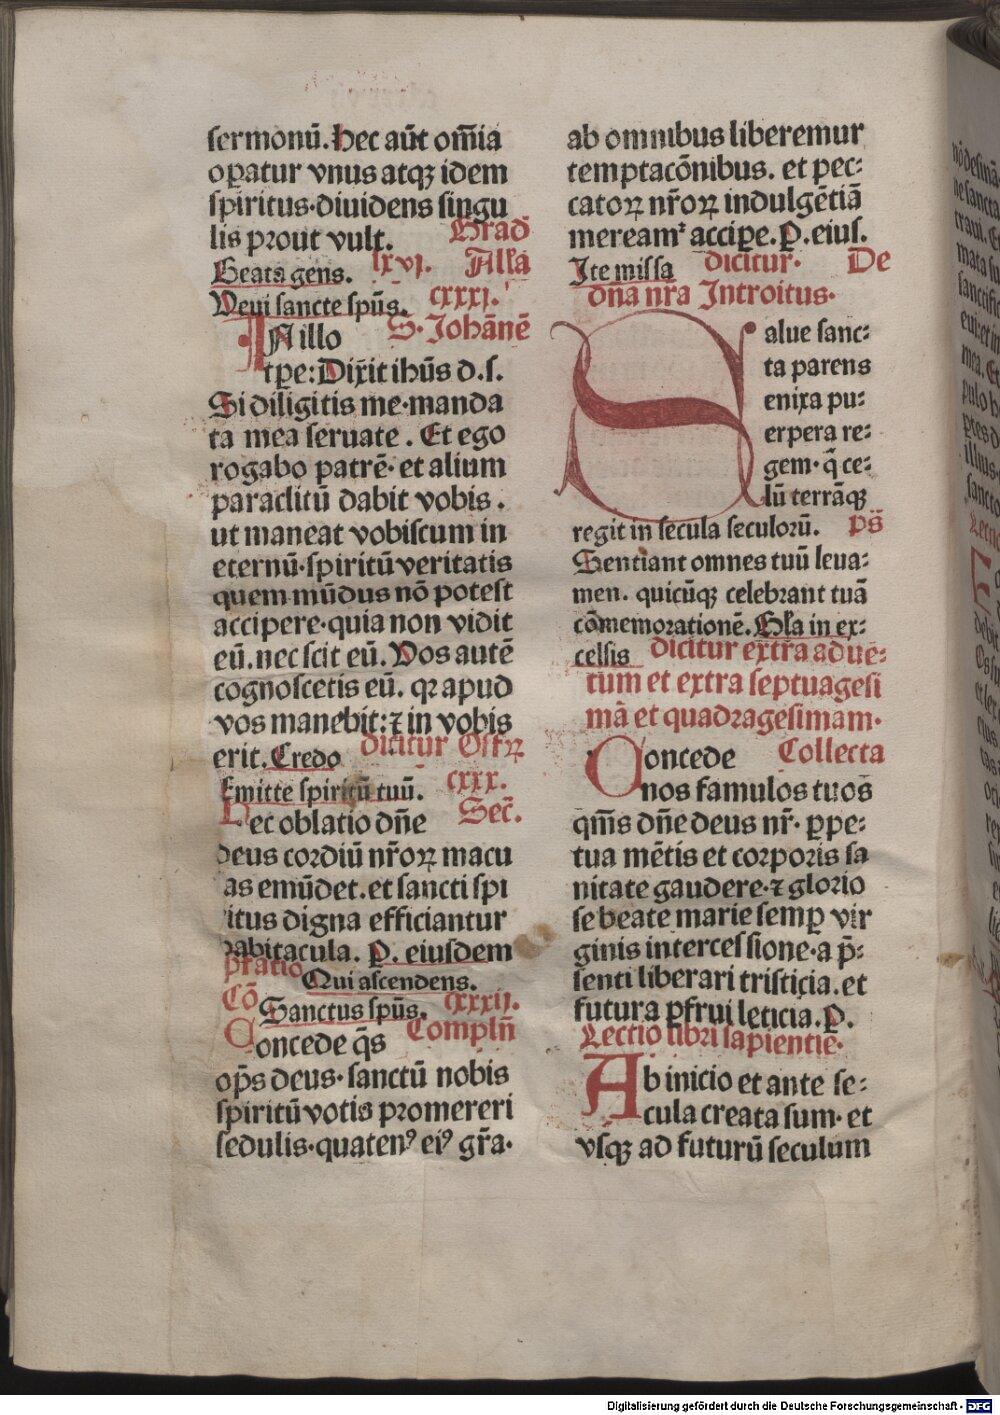 sermonū. Hec aūt om̄ia
oꝑatur vnus atqꝫ idem
spiritus·diuidens singu
lis prout vult. Grad̄
Beata gens. lxvj. Alla
Veni sancte spūs. cxxxj.
IN illo S. Johānē
tꝑe: Dixit ihūs d. s.
Si diligitis me·manda
ta mea seruate. Et ego
rogabo patrē· et alium
paraclitū dabit vobis.
ut maneat vobiscum in
eternū·spiritū veritatis
quem mūdus nō potest
accipere·quia non vidit
eū. nec scit eū. Vos autē
cognoscetis eū. qꝛ apud
vos manebit: ⁊ in vobis
erit. Credo dicitur Offꝝ
Emitte spiritū tuū. cxxx.
Hec oblatio dn̄e Sec̄.
deus cordiū nr̄oꝝ macu
as emūdet. et sancti spi
ritus digna efficiantur
habitacula. P. eiusdem
p̄fatio Qui ascendens.
Cō Sanctus spūs. cxxxij.
Concede q̄s Compln̄
op̄s deus· sanctū nobis
spiritū votis promereri
sedulis·quatenꝰ eiꝰ gr̄a·
ab omnibus liberemur
temptacōnibus. et pec-
catoꝝ nr̄oꝝ indulgētiā
mereamᷣ acciꝑe. P. eius.
Ite missa dicitur· De
dn̄a nr̄a Introitus·
Salue sanc-
ta parens
enixa pu-
erpera re-
gem· q̄ ce-
lū terrāqꝫ
regit in secula seculorū. ps̄
Sentiant omnes tuū leua-
men. quicūqꝫ celebrant tuā
cōmemorationē. Gl̄a in ex-
celsis dicitur extra adue-
tum et extra septuagesi
mā et quadragesimam·
Concede Collecta
nos famulos tuos
qm̄s dn̄e deus nr̄· ꝑpe-
tua mētis et corporis sa
nitate gaudere·⁊ glorio
se beate marie semꝑ vir
ginis intercessione·a p̄-
senti liberari tristicia. et
futura ꝑfrui leticia. P.
Lectio libri sapientie·
Ab inicio et ante se-
cula creata sum· et
vsqꝫ ad futurū seculum
Digitalisierung gefördert durch die Deutsche Forschungsgemeinschaft - DFG